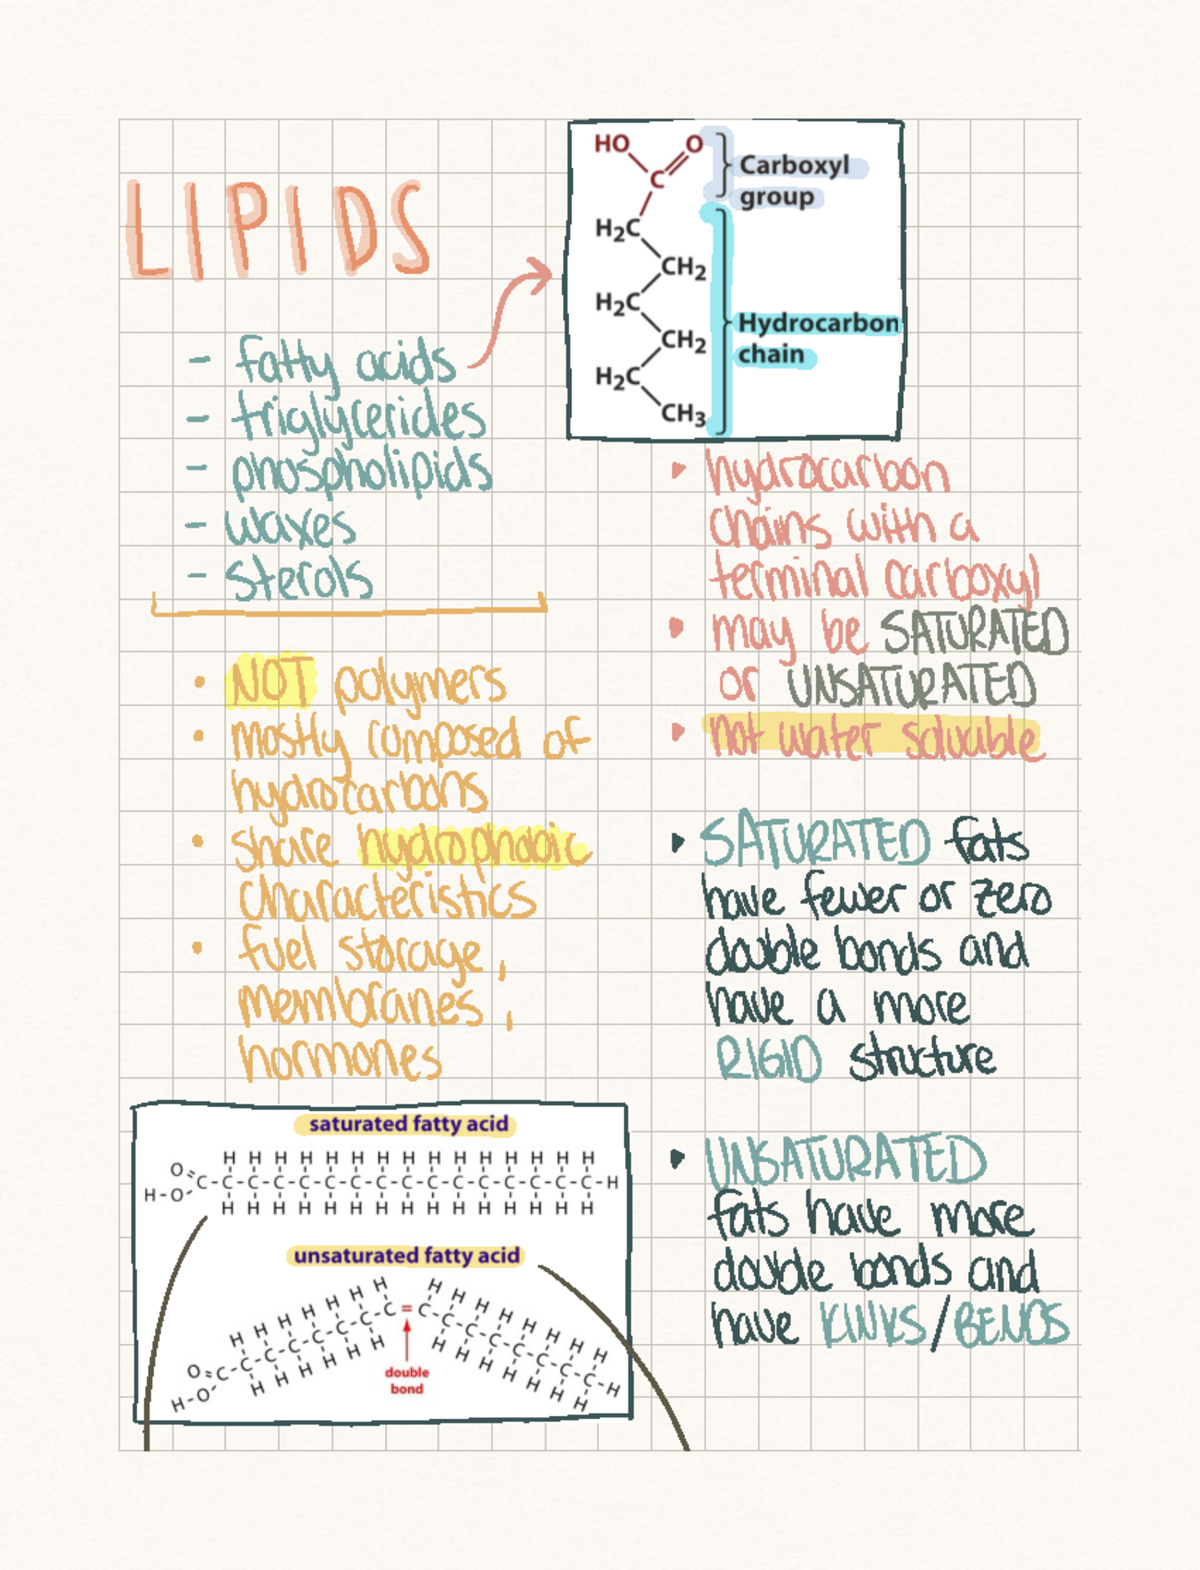 LIPIDS
- fatty acids
- triglycerides
- phospholipids
- waxes
- sterols
• NOT polymers
• mostly composed of
hydrocarbons
• share hydrophobic
characteristics
• fuel storage,
membranes,
hormones
HO O
C
H₂C
CH₂
H₂C
CH₂
H₂C
CH₃
Carboxyl
group
Hydrocarbon
chain
hydrocarbon
chains with a
terminal carboxyl
may be SATURATED
or UNSATURATED
not water soluable
SATURATED fats
have fewer or zero
double bonds and
have a more
RIGID structure
UNSATURATED
fats have more
double bonds and
have KINKS/BENDS
saturated fatty acid
H H H H H H H H H H H H H H H
O=C-C-C-C-C-C-C-C-C-C-C-C-C-C-C-C-H
H-O
H H H H H H H H H H H H H H H
unsaturated fatty acid
H H H H H H H H H H H H H H H
O=C-C-C-C-C-C-C-C=C-C-C-C-C-C-C-C-H
H-O
H H H H H H H H H H H H H
double
bond